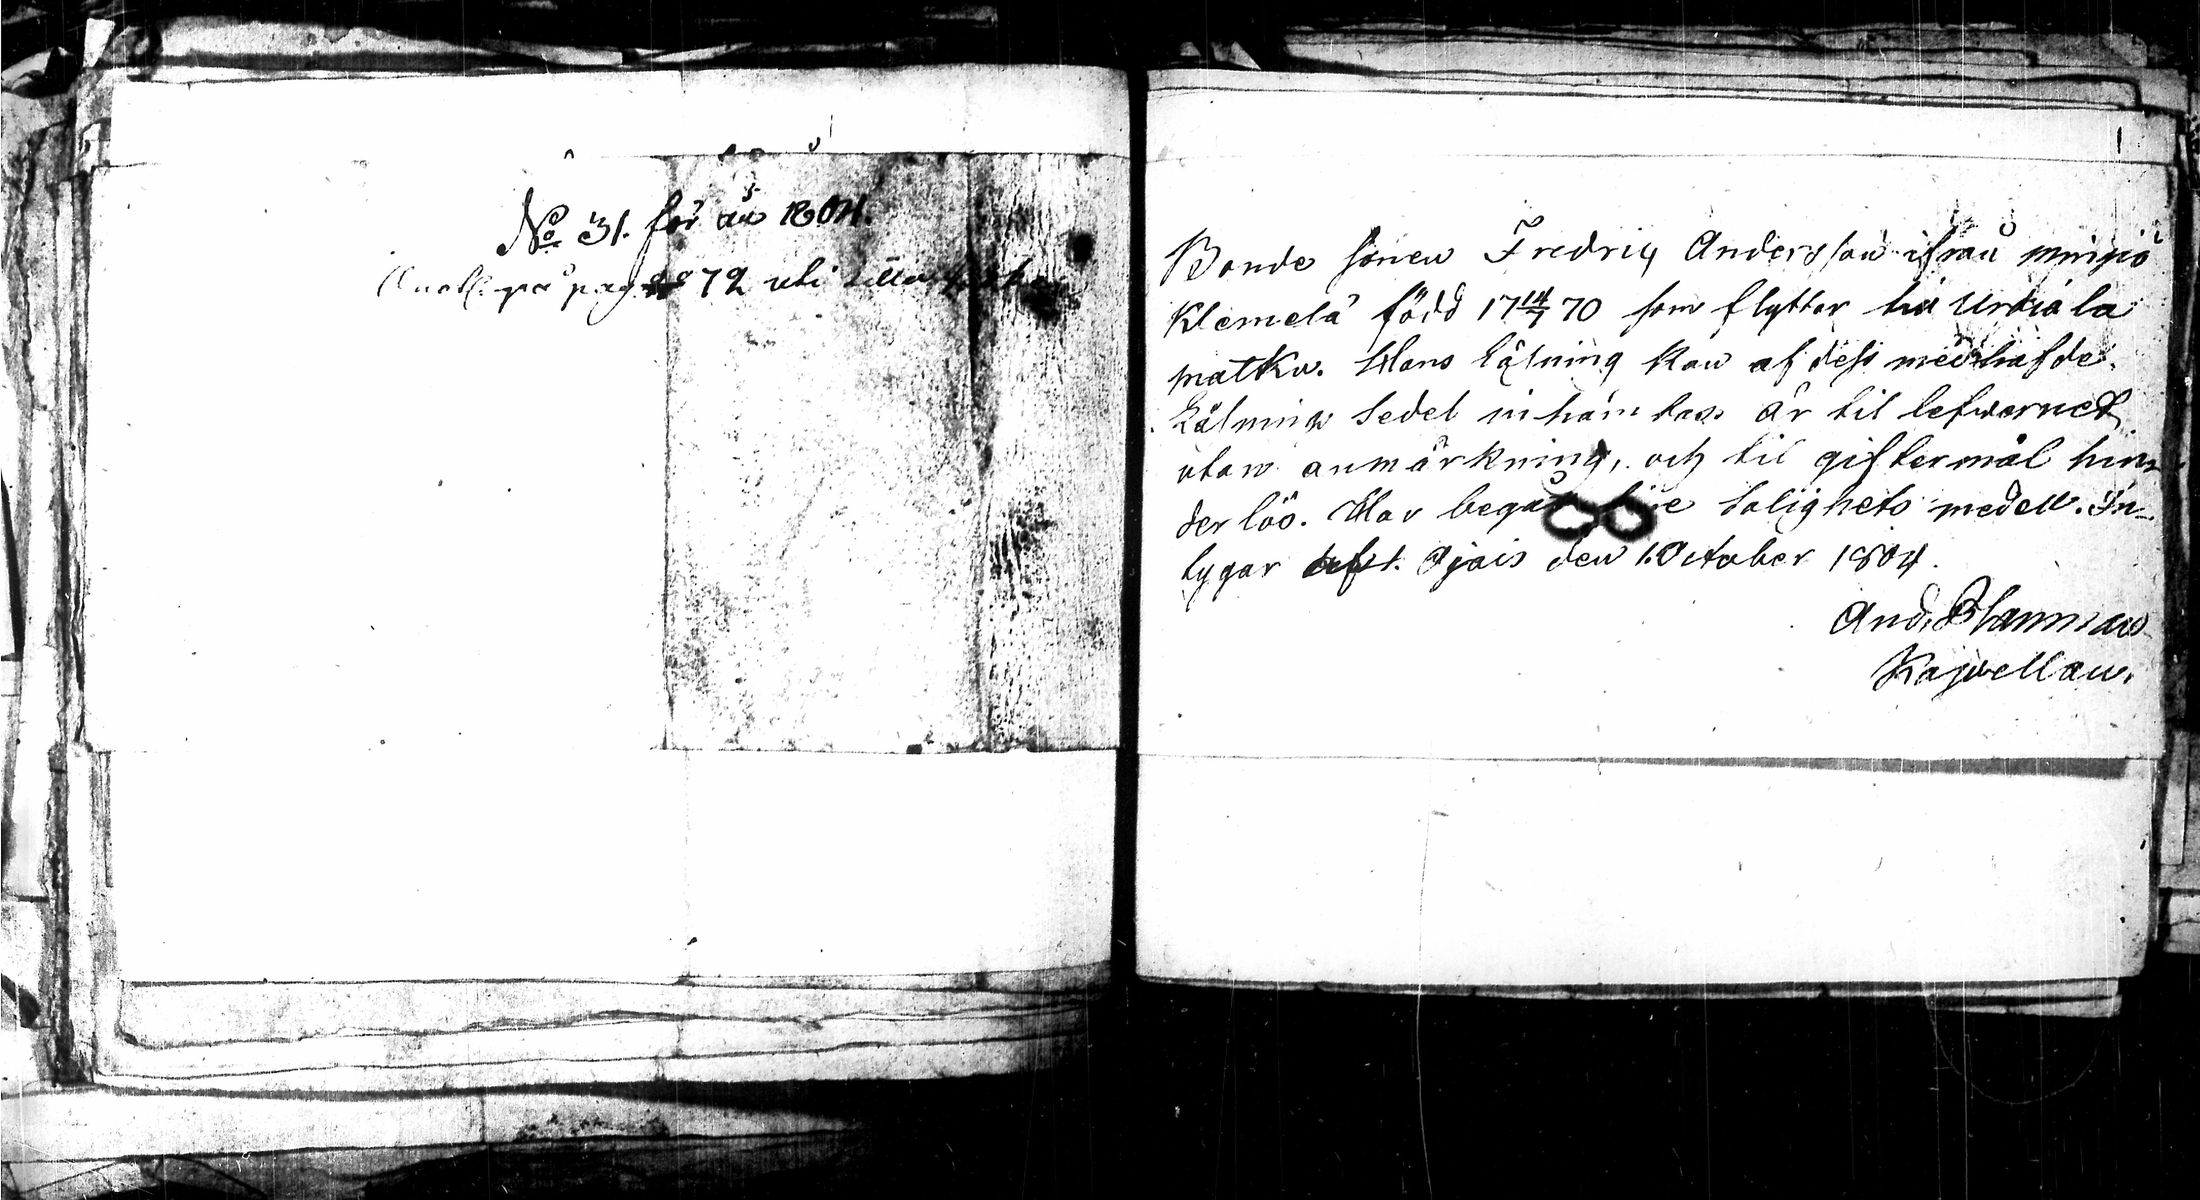 No 31. för år 1804.
på pag 72 uti
Bonde sonen Fredric Andersson ifrån
Klemelä född 17 14/7 70 som flytter til Urdiala
matku. Hans läsning kan af dess medhafde
Läsning sedel inhämtas är til lefwernet
utan anmärkning, och til giftermål hin-
derlös. Har begått salighets medell. In-
tygar den 1. October 1804.
And. Blanman
Kapellan.